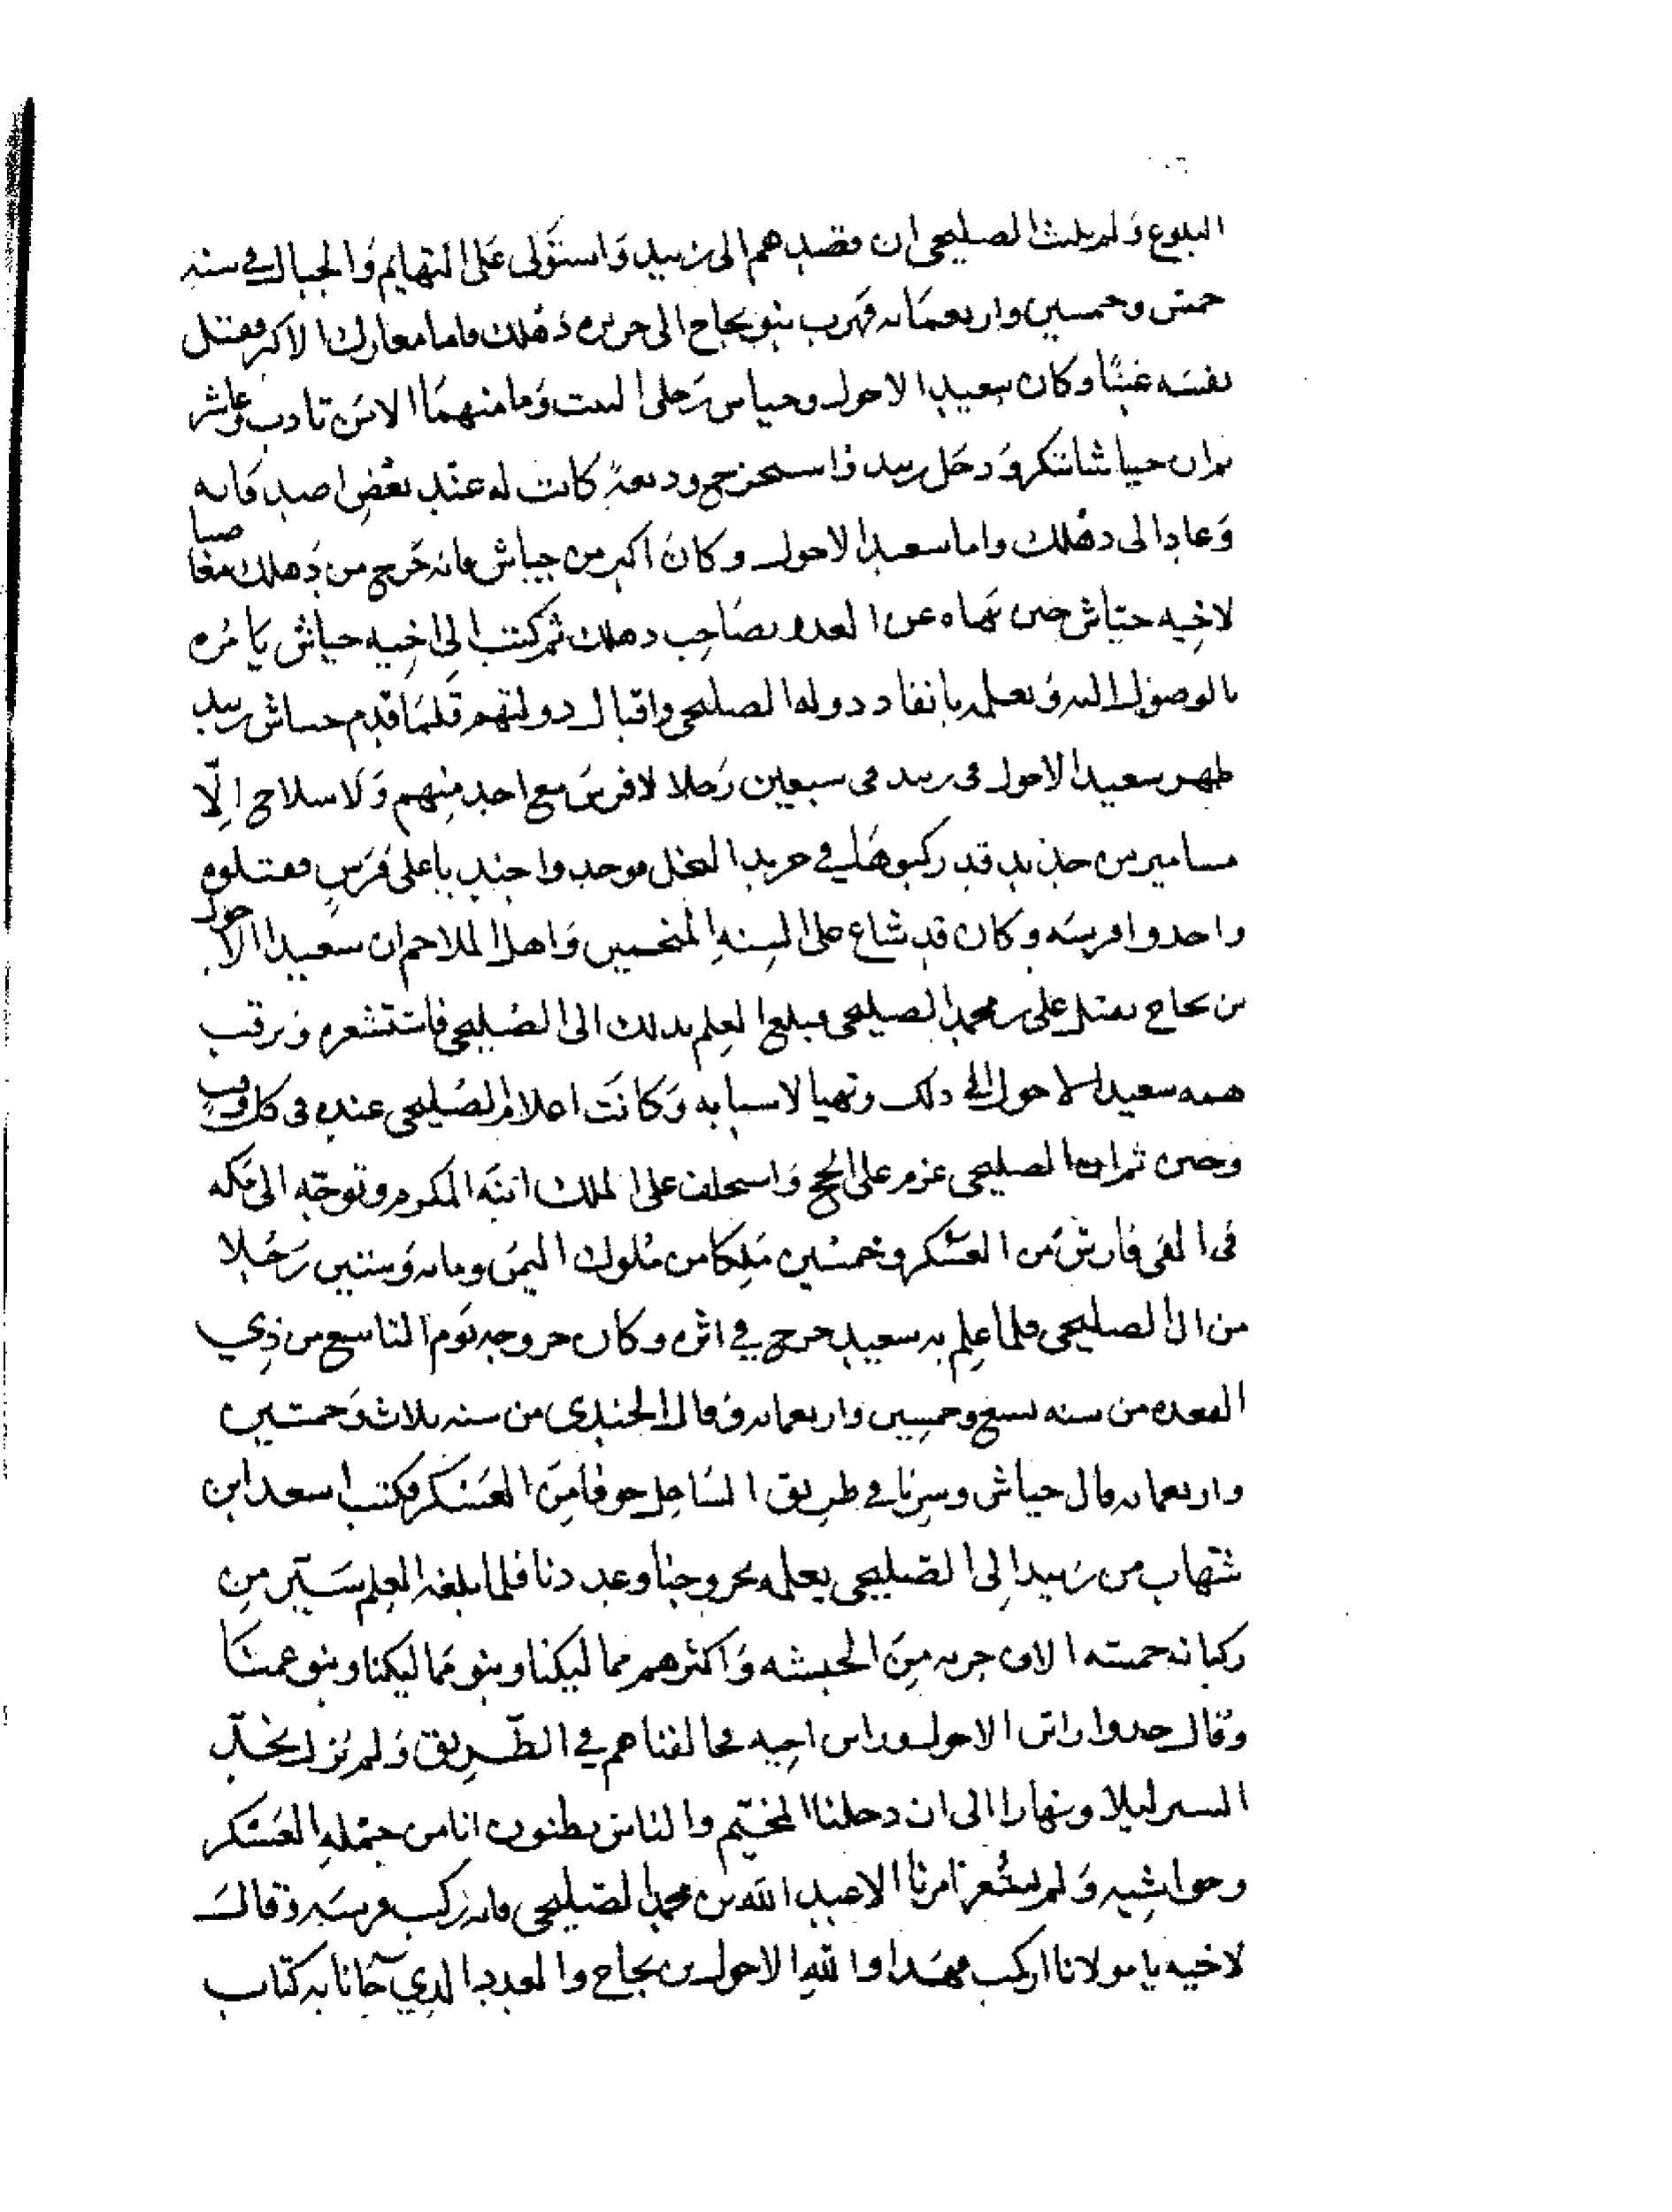 البلوغ ولم يلبث الصليحي ان قصدهم الى زبيد واستولى على التهايم والجبال في سنه
خمس وخمسين واربعمايه فهرب بنو نجاح الى جزيره دهلك واما معارك الاكبر فقتل
نفسه غبنا وكان سعيد الاحول وجياش رجلى البيت وما منهما الا من تادب وعاشر
ثم ان جياشا تنكر ودخل زبيد فاستخرج وديعة كانت له عند بعض اصدقايه
وعاد الى دهلك واما سعيد الاحول وكان اكبر من جياش فانه خرج من دهلك مغاصبا
لاخيه جياش حين نهاه عن الغدر بصاحب دهلك ثم كتب الى اخيه جياش يامره
بالوصول اليه ويعلمه بانفاد دولة الصليحي واقبال دولتهم فلما قدم جياش زبيد
ظهر سعيد الاحول في زبيد في سبعين رجلا لا فرس مع احد منهم ولا سلاح الا
مسامير من حديد قد ركبوها في جريد النخل فوجدوا جنديا على فرس فقتلوه
واخدوا فرسه وكان قد شاع على السنة المنجمين واهل الملاحم ان سعيدا الاحول
بن نجاح يقتل علي بن محمد الصليحي فبلغ العلم بدلك الى الصليحي فاستشعره وترقب
همه سعيد الاحول الى دلك وتهيا لاسبابه وكانت اعلام الصليحي عنده في كل وقت
وحين ثم ان الصليحي عزم على الحج واستخلف على الملك ابنه المكرم وتوجه الى مكه
في الفي فارس من العسكر وخمسين ملكا من ملوك اليمن ومايه وستين رجلا
من ال الصليحي فلما علم به سعيد خرج في اثره وكان خروجه يوم التاسع من ذي
القعده من سنه تسع وخمسين واربعمايه وقال الجندي من سنه ثلاث وخمسين
واربعمايه قال جياش وسرنا في طريق الساحل خوفا من العسكر فكتب اسعد ابن
شهاب من زبيد الى الصليحي يعلمه بخروجنا وعددنا فلما بلغه العلم سير من
ركابه خمسه الاف حربه من الحبشه واكثرهم مماليكنا وبنو مماليكنا وبنو عمنا
وقال خدوا راس الاحول وراس اخيه فخالفناهم في الطريق ولم نزل نجد
السير ليلا ونهارا الى ان دخلنا المخيم والناس يظنون انا من جملة العسكر
وحواشيه ولم يشعر بامرنا الا عبد الله بن محمد الصليحي فانه ركب فرسه وقال
لاخيه يا مولانا اركب فهدا والله الاحول بن نجاح والعدد الدي جانا به كتاب